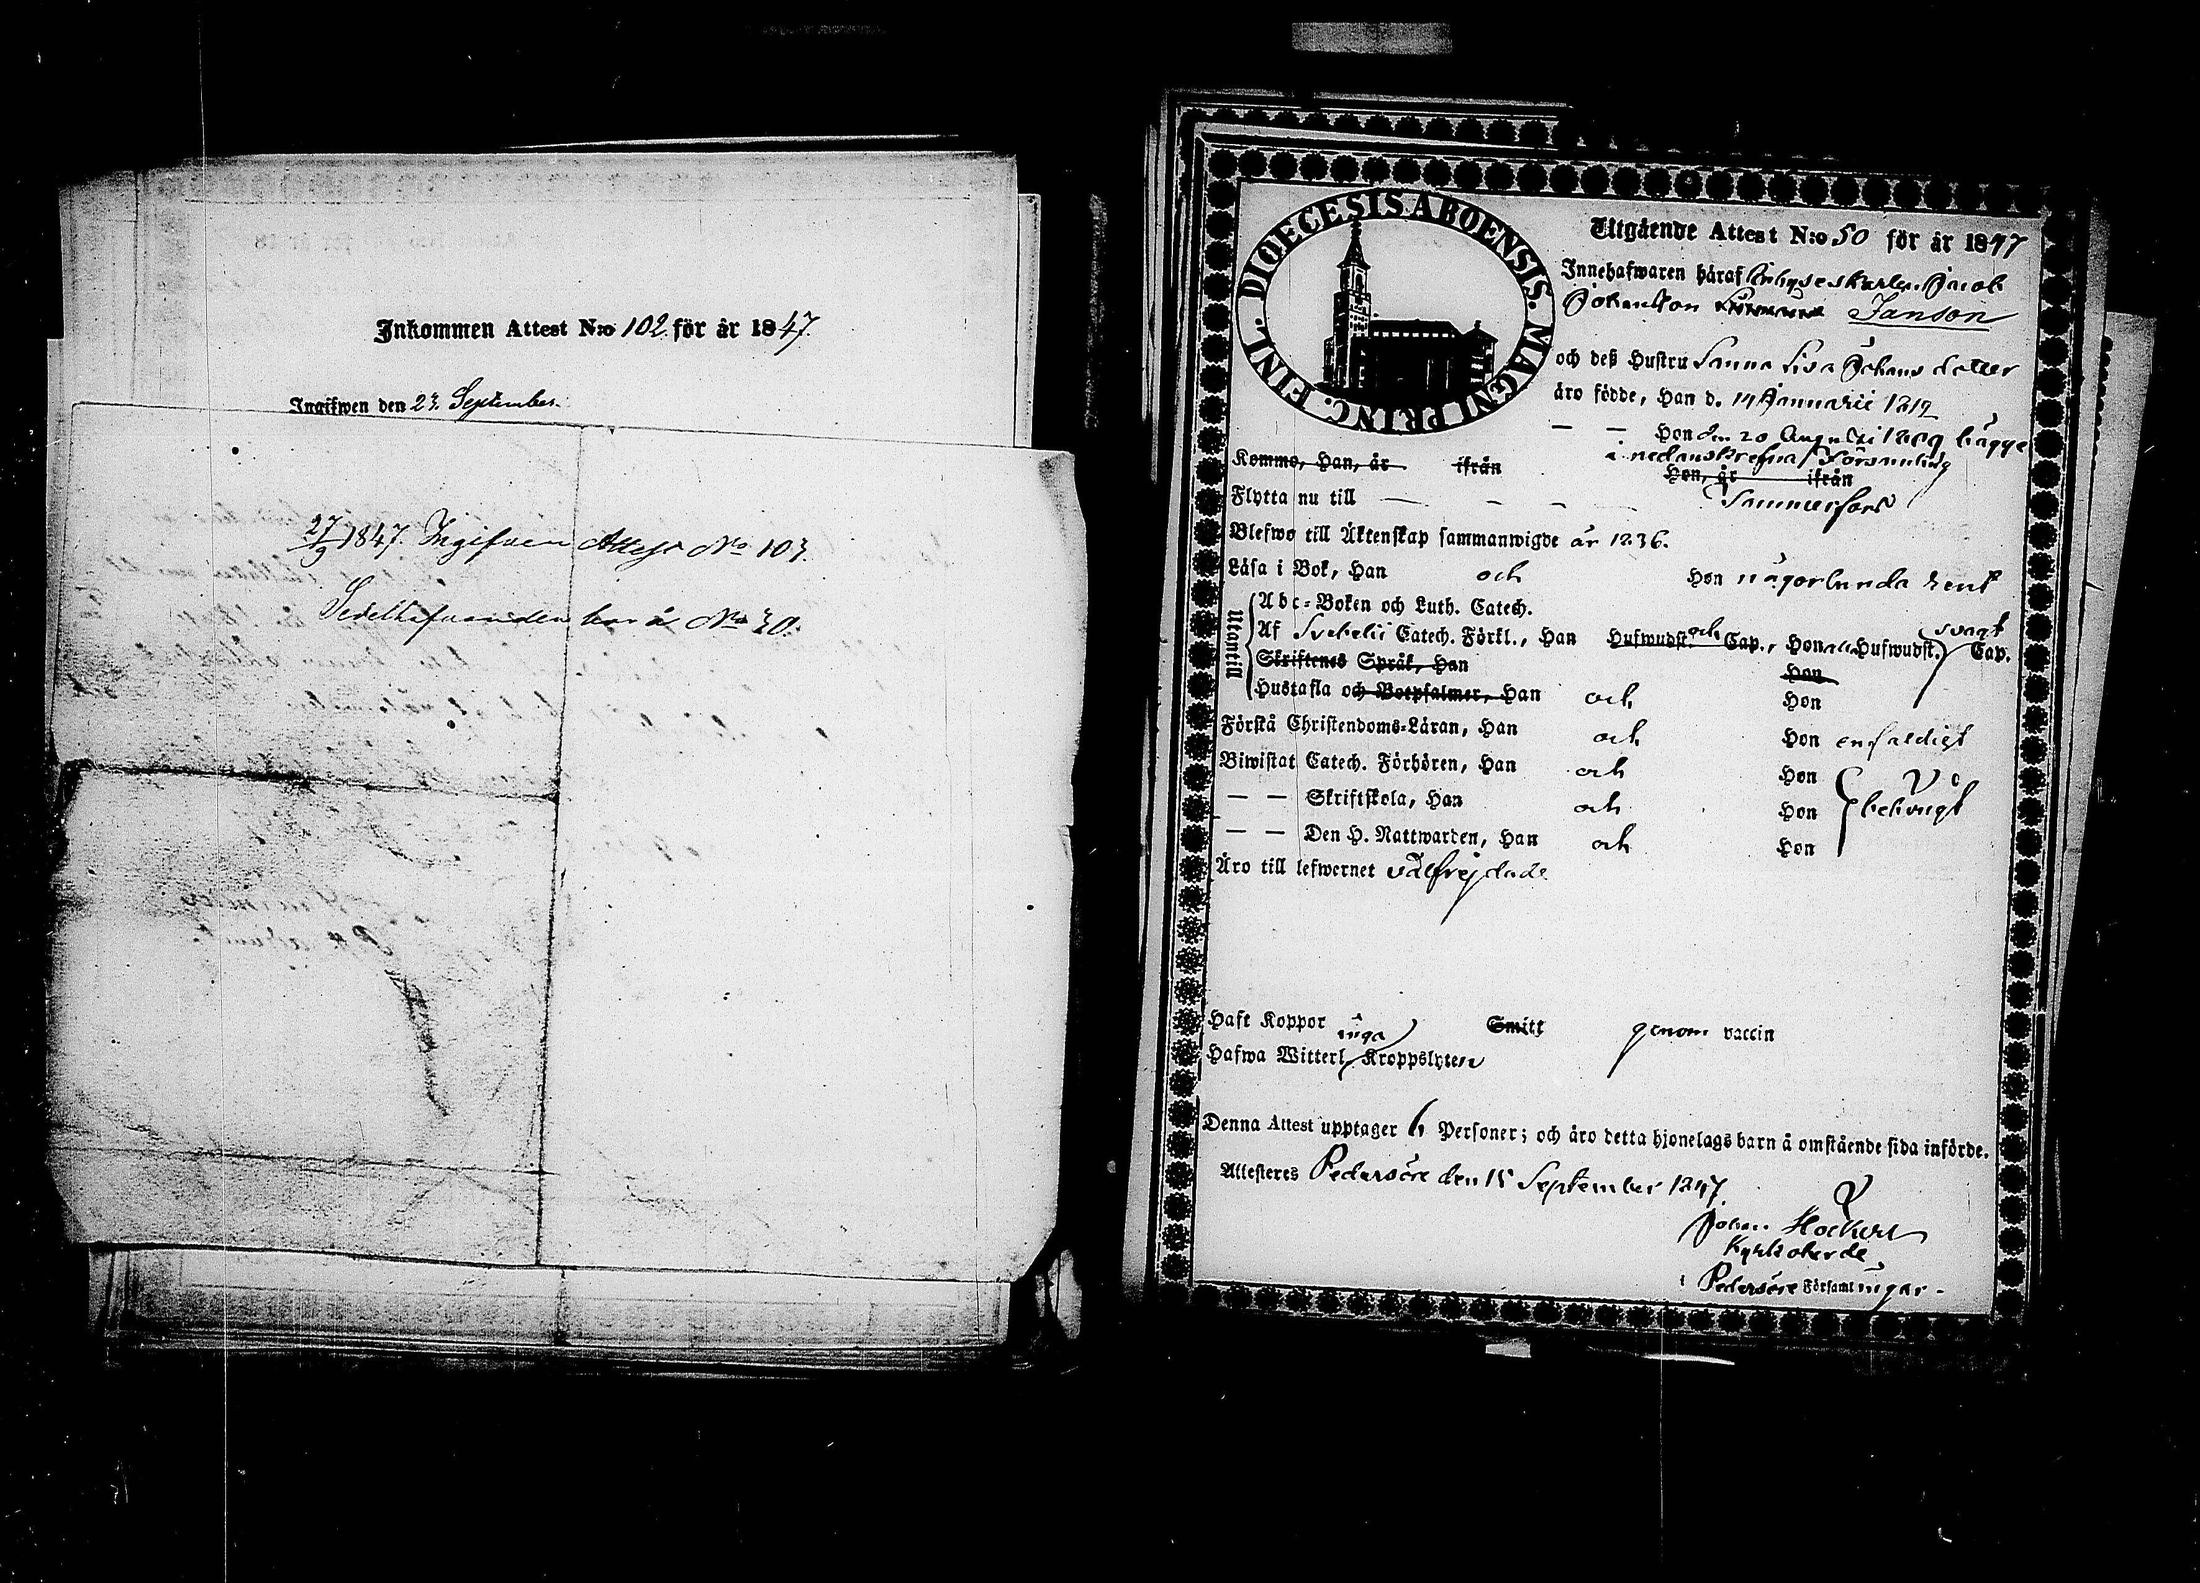 Inkommen Attest N:o 102 för år 1847.
Ingifwen den 23. September.
27/9 1847. Ingifven Attest No 103.
Sedelhafvanden bor å No 30.
DIOECESIS ABOENSIS. MAGNI PRINC. FINL.
Utgående Attest N:o 50 för år 1847
Innehafwaren häraf Jacob
Johansson Janson
och deß Hustru Sanna Lisa Johans dotter
äro födde, Han d. 14 Januarii 1812
— — Hon den 20 Augusti 1809 bägge
i nedanskrefna Församling
Komme, Han, år ifrån Hon, år ifrån
Flytta nu till — — — Tammerfors
Blefwo till Äktenskap sammanwigde år 1836.
Läsa i Bok, Han och Hon någorlunda rent
Utantill
Abc-Boken och Luth. Catech.
Af Svebelii Catech. Förkl., Han Hufwudst. och Cap., Hon Hufwudst. Cap. svagt
Skriftenes Språk, Han Hon
Hustafla och Botpsalmer, Han och Hon
Förstå Christendoms-Läran, Han och Hon enfaldigt
Biwistat Catech. Förhören, Han och Hon
— — Skriftskola, Han och Hon behörigt
— — Den H. Nattwarden, Han och Hon
Äro till lefwernet välfrejdade
Haft Koppor Smitt genom vaccin
Hafwa Witterl. inga Kroppslyten
Denna Attest upptager 6 Personer; och äro detta hjonelags barn å omstående sida införde.
Attesteres Pedersöre den 15 September 1847.
Johan Hockert
Kyrkoherde
i Pedersöre Församlingar.